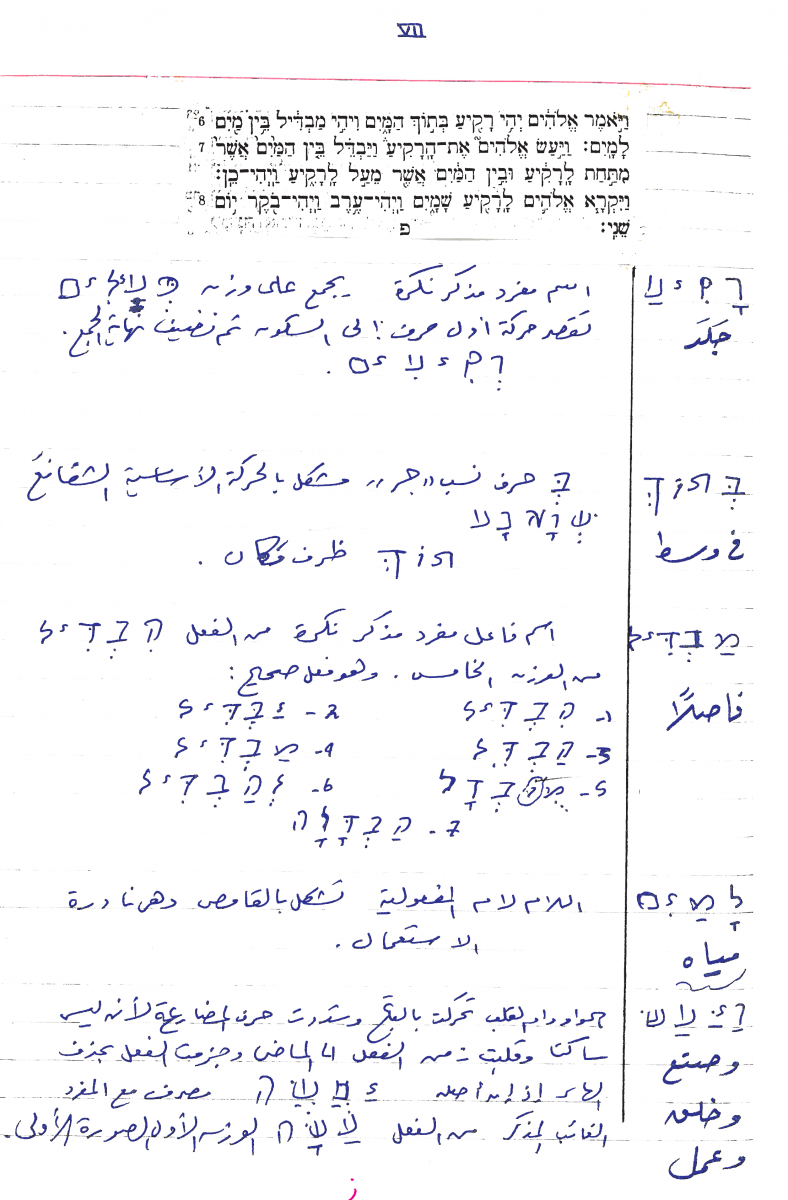 VII
וַיֹּ֣אמֶר אֱלֹהִ֔ים יְהִ֥י רָקִ֖יעַ בְּת֣וֹךְ הַמָּ֑יִם וִיהִ֣י מַבְדִּ֔יל בֵּ֥ין מַ֖יִם 6
לָמָֽיִם׃ וַיַּ֣עַשׂ אֱלֹהִים֮ אֶת־הָרָקִיעַ֒ וַיַּבְדֵּ֗ל בֵּ֤ין הַמַּ֙יִם֙ אֲשֶׁר֙ 7
מִתַּ֣חַת לָרָקִ֔יעַ וּבֵ֣ין הַמַּ֔יִם אֲשֶׁ֖ר מֵעַ֣ל לָרָקִ֑יעַ וַֽיְהִי־כֵֽן׃
וַיִּקְרָ֧א אֱלֹהִ֛ים לָֽרָקִ֖יעַ שָׁמָ֑יִם וַֽיְהִי־עֶ֥רֶב וַֽיְהִי־בֹ֖קֶר י֥וֹם 8
שֵׁנִֽי׃ פ
רָקִיעַ اسم مفرد مذكر نكرة يجمع على وزن
جَلَد حركة أول حرف إلى السكون ثم نضيف نهاية الجمع.
רְקִיעִים .
בְּתוֹךְ בְּ حرف نسب "جر" مشكل بالحركة الأساسية الشفانع
שְׁוָא נָע
في وسط תוֹךְ ظرف مكان .
מַבְדִּיל اسم فاعل مفرد مذكر نكرة من الفعل הִבְדִּיל
من الوزن الخامس . وهو فعل صحيح :
فاصلًا 1- הִבְדִּיל 2- יַבְדִּיל
3- הַבְדֵּל 4- מַבְדִּיל
5- מֻבְדָּל 6- לְהַבְדִּיל
7- הַבְדָּלָה
לָמַיִם اللام لام المفعولية تشكل بالقامص وهي نادرة
مياه الاستعمال .
וַיַּעַשׂ الواو واو القلب تحركت بالفتح وشددت حرف المضارعة لأنه ليس
وصنع ساكنا وقلبت زمن الفعل الى الماضي وجزمت الفعل بحذف
وخلق الهاء إذ إن أصله יַעֲשֶׂה مصرف مع المفرد
الغائب المذكر من الفعل עָשָׂה الوزن الأول الصورة الأولى.
وعمل
ز